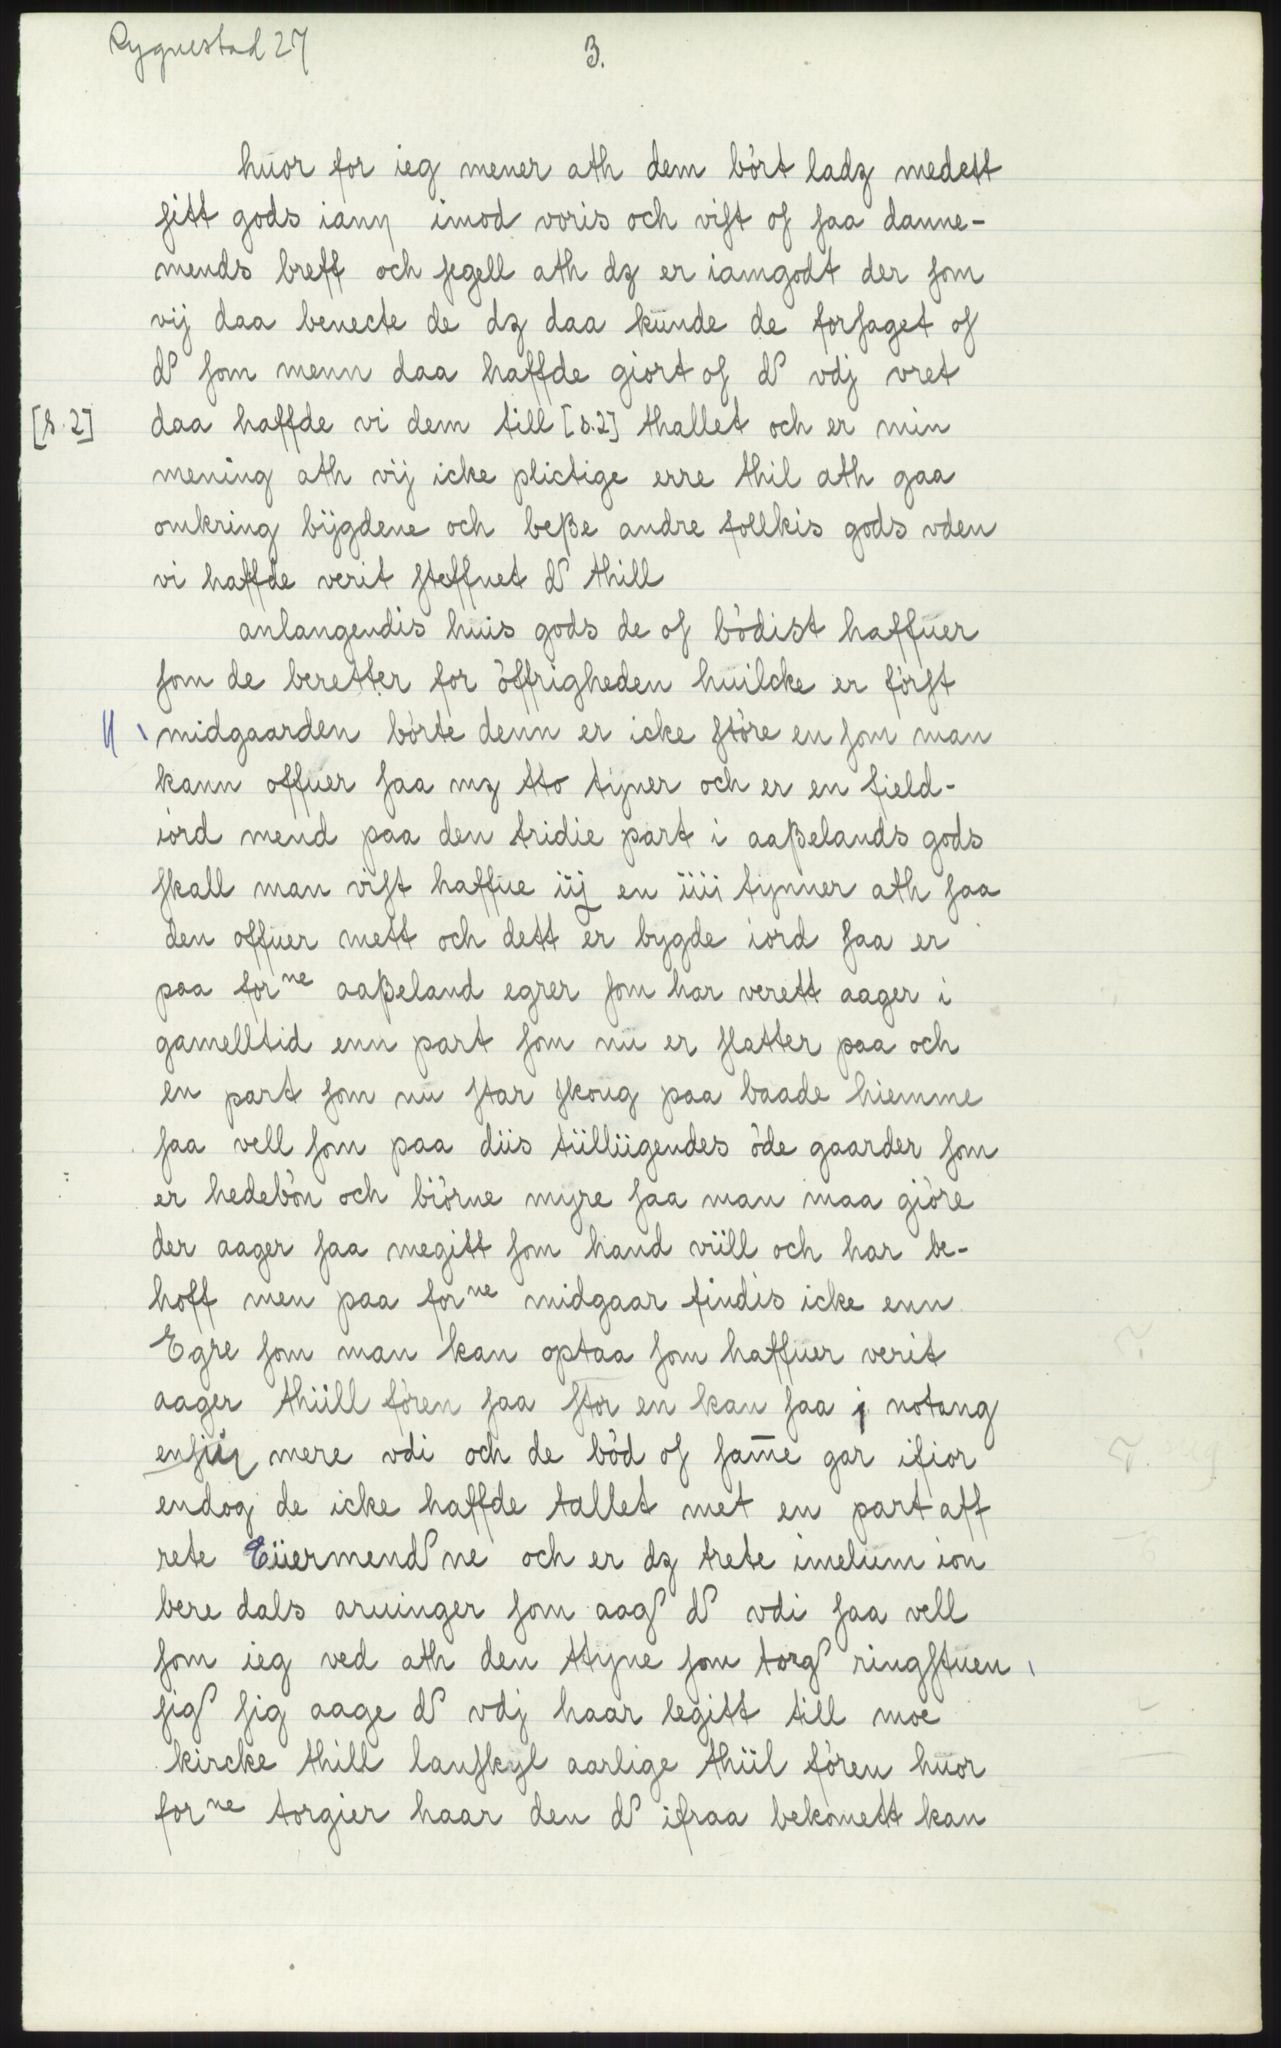 Rygnestad 27
3.
huor for ieg mener ath dem bört ladz medett
sitt gods iany imod voris och vist os saa danne-
mends breff och segell ath dz er iamgodt der som
vij daa benecte de dz daa kunde de forsaget os
d som menn daa haffde giort os d vdj vret
[s. 2] daa haffde vi dem till [s.2] thallet och er min
mening ath vij icke plictige erre thil ath gaa
omkring bÿgdene och beße andre follkis gods vden
vi haffde verit steffnet d thill
anlangendis huis gods de os bödist haffuer
som de beretter for öffrigheden huilcke er först
midgaarden börte denn er icke störe en som man
kann offuer saa mz tto tyner och er en field-
iord mend paa den tridie part i aaßelands gods
skall man vist haffue iij en iiii tynner ath saa
den offuer mett och dett er bygde iord saa er
paa forne aaßeland egrer som har verett aager i
gamelltid enn part som nu er sletter paa och
en part som nu star skoug paa baade hiemme
saa vell som paa diis tülliigendes öde gaarder som
er hedebön och biörne myre saa man maa giöre
der aager saa megitt som hand viill och har be-
hoff men paa forne midgaar findis icke enn
Egre som man kan optaa som haffuer verit
aager thiill fören saa stor en kan saa i notang
mere vdi och de böd os same gar ifior
endog de icke haffde tallet met en part aff
rete Eüermend ne och er dz trete imelum ion
bere dals aruinger som aag d vdi saa vell
som ieg ved ath den ttyne som torg ringstuen
sig sig aage d vdj haar legitt till moe
kircke thill lanskyl aarlige thiil fören huor
forne torgier haar den d ifraa bekomett kan